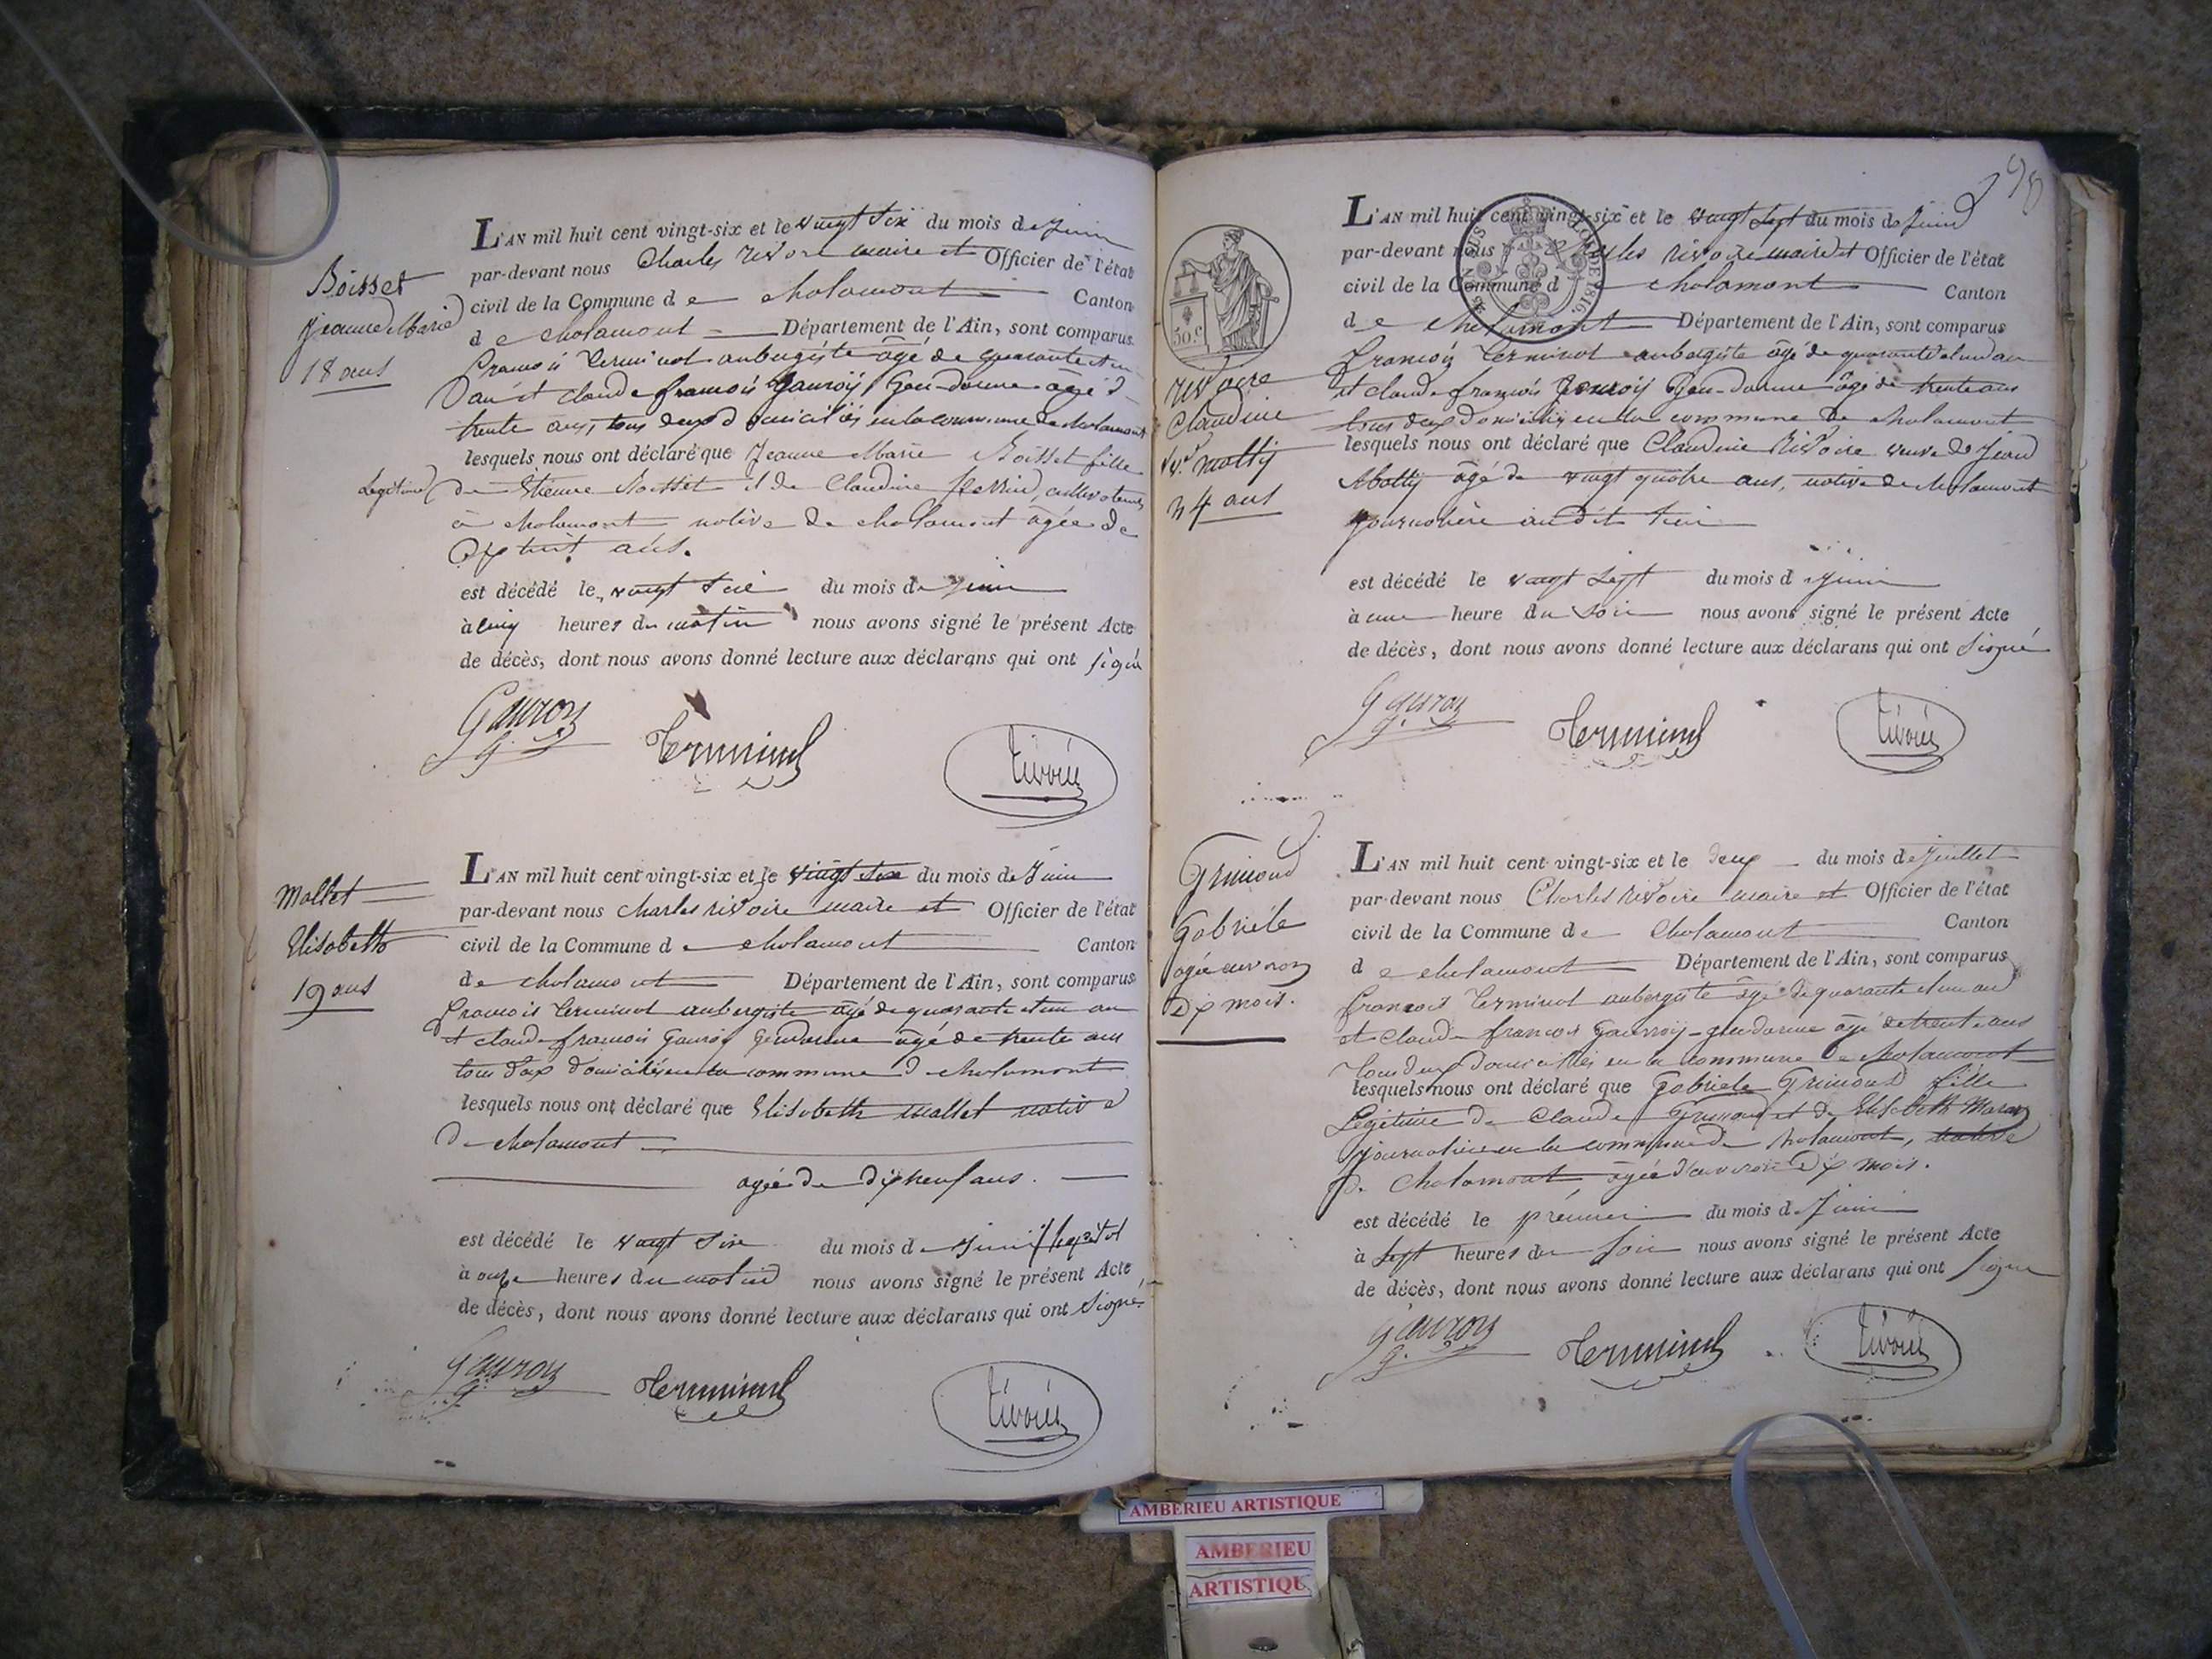 Boisset
Jeanne Marie
18 ans
L'AN mil huit cent vingt-six et le vingt six du mois de Juin
par-devant nous Charles rivoire maire et Officier de l'état
civil de la Commune de cholamont Canton
de cholamont Département de l'Ain, sont comparus
francois Terminot aubergiste âgé de quarante et un
an et claude francois Gauroy Gendarme âgé d
trente ans, tous deux domiciliés en la commune de cholamont
lesquels nous ont déclaré que Jeanne Marie Boisset fille
Legitime de Etienne Boisset et de Claudine cultivateurs
à cholamont native de cholamont âgée de
dix huit ans.
est décédé le vingt six du mois de juin
à cinq heures du matin nous avons signé le présent Acte
de décès, dont nous avons donné lecture aux déclarans qui ont signé
Gauroy
G.
Terminot
rivoire
mallet
Elisabeth
19 ans
L'AN mil huit cent vingt-six et le vingt six du mois de Juin
par-devant nous charles rivoire maire et Officier de l'état
civil de la Commune de cholamont Canton
de cholamont Département de l'Ain, sont comparus
francois Terminot aubergiste âgé de quarante et un an
et claude francois Gauroy Gendarme âgé de trente ans
tous deux domiciliés en la commune de cholamont
lesquels nous ont déclaré que Elisabeth mallet native
de cholamont
agée de dix neuf ans.
est décédé le vingt six du mois de Juin
à onze heures du matin nous avons signé le présent Acte
de décès, dont nous avons donné lecture aux déclarans qui ont signé.
Gauroy
G.
Terminot
rivoire
98
50 c
rivoire
Claudine
Ve. matty
24 ans
L'AN mil huit cent vingt-six et le vingt sept du mois de Juin
par-devant nous Charles rivoire maire et Officier de l'état
civil de la Commune d cholamont Canton
de cholamont Département de l'Ain, sont comparus
francois Terminot aubergiste âgé de quarante et un an
et claude francois Gauroy Gendarme âgé de trente ans
tous deux domiciliés en la commune de cholamont
lesquels nous ont déclaré que Claudine Rivoire veuve de Jean
Matty âgé de vingt quatre ans, native de cholamont
journalière au dit lieu
est décédé le vingt sept du mois de juin
à une heure du soir nous avons signé le présent Acte
de décès, dont nous avons donné lecture aux déclarans qui ont signé
Gauroy
G.
Terminot
rivoire
Grimoud
Gabriele
agée environ
dix mois.
L'AN mil huit cent vingt-six et le deux du mois de Juillet
par-devant nous Charles rivoire maire et Officier de l'état
civil de la Commune de cholamont Canton
de cholamont Département de l'Ain, sont comparus
francois Terminot aubergiste âgé de quarante et un an
et claude francois Gauroy gendarme âgé de trente ans
tous deux domiciliés en la commune de cholamont
lesquels nous ont déclaré que Gabriele Grimoud fille
Legitime de Claude Grimoud et de Elisabeth
journaliers en la commune de cholamont, native
de Cholamont âgée d'environ dix mois.
est décédé le premier du mois de Juin
à sept heures du soir nous avons signé le présent Acte
de décès, dont nous avons donné lecture aux déclarans qui ont signé
Gauroy
G.
Terminot
rivoire
AMBERIEU ARTISTIQUE
AMBERIEU
ARTISTIQUE